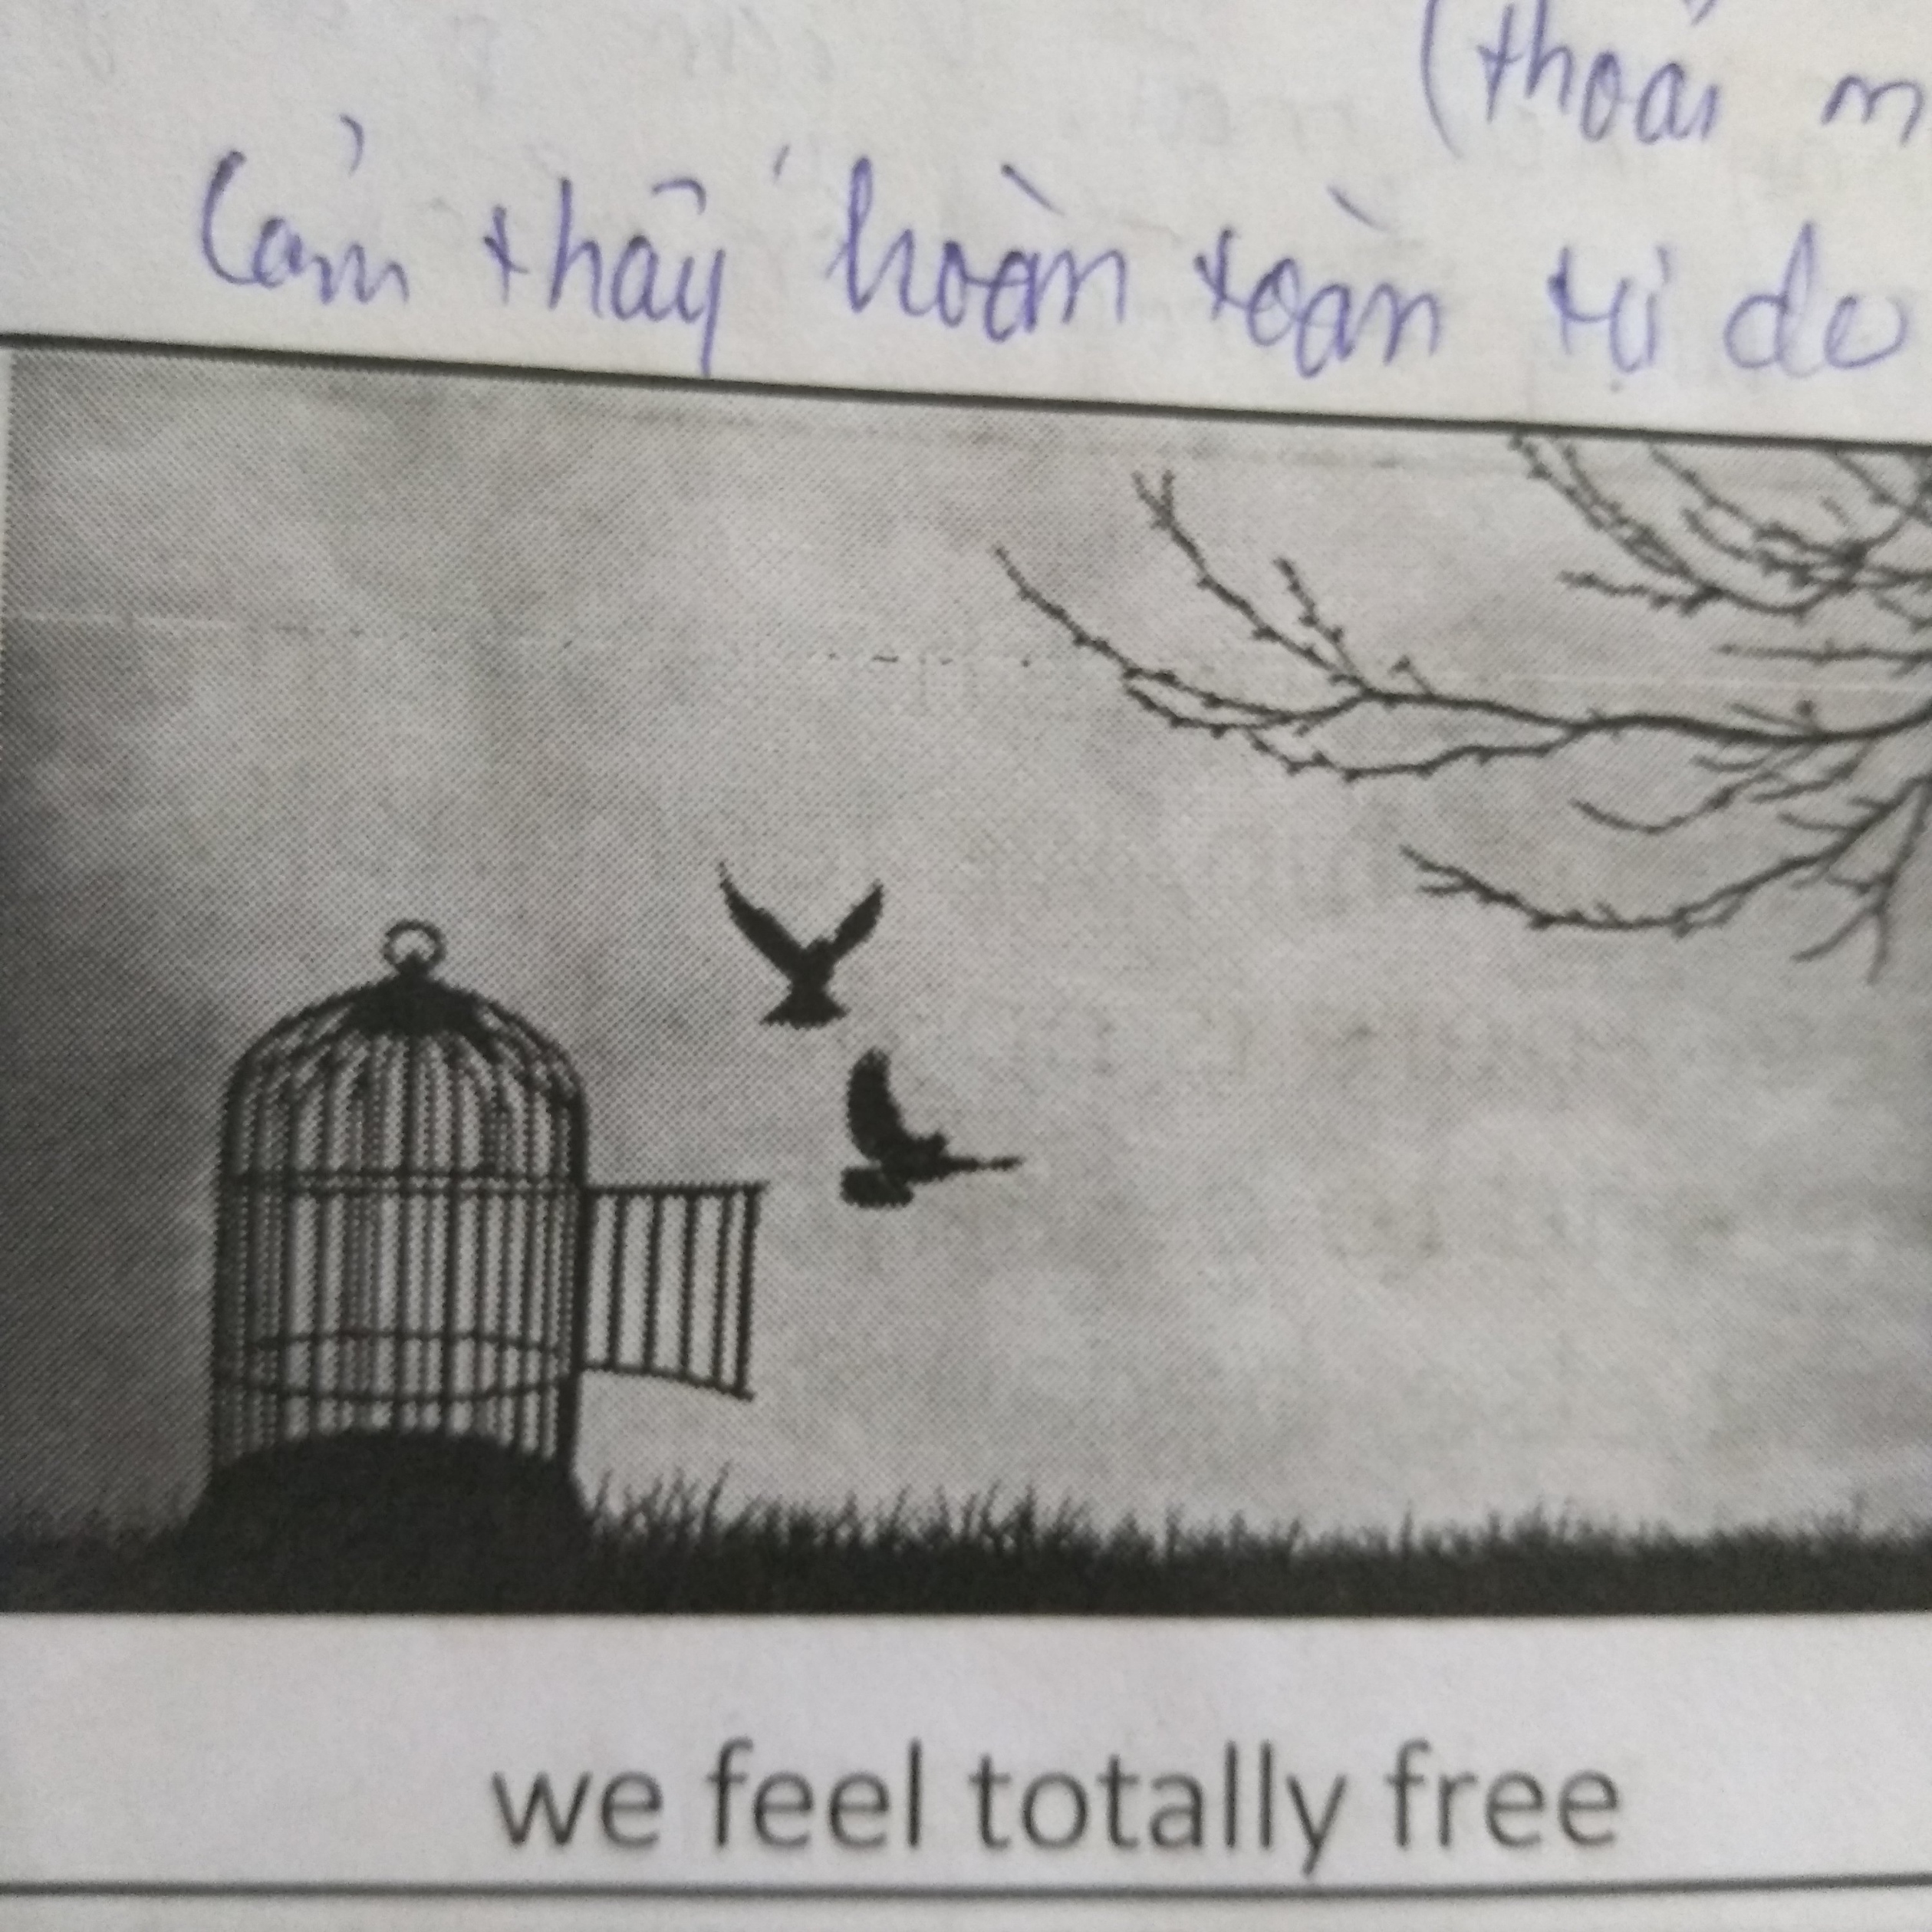 (thoải m
Cảm thấy hoàn toàn tự do
we feel totally free